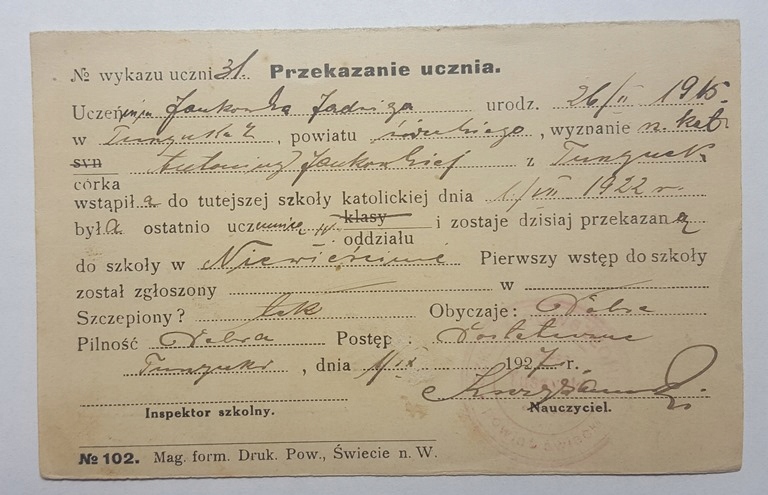 № wykazu uczni 31. Przekazanie ucznia.
Uczeń Jankowska Jadwiga urodz. 26/II 1915.
w , powiatu świeckiego, wyznanie r. kat
syn Jankowskiej z
córka
wstąpiła do tutejszej szkoły katolickiej dnia 1/VII 1922 r.
była ostatnio uczennicą klasy i zostaje dzisiaj przekazaną
oddziału
do szkoły w Niewieścinie Pierwszy wstęp do szkoły
został zgłoszony w
Szczepiony? tak Obyczaje: Dobre
Pilność Dobra Postęp: Dostateczne
, dnia 1/IX 1927 r.
Inspektor szkolny. Nauczyciel.
№ 102. Mag. form. Druk. Pow., Świecie n. W.